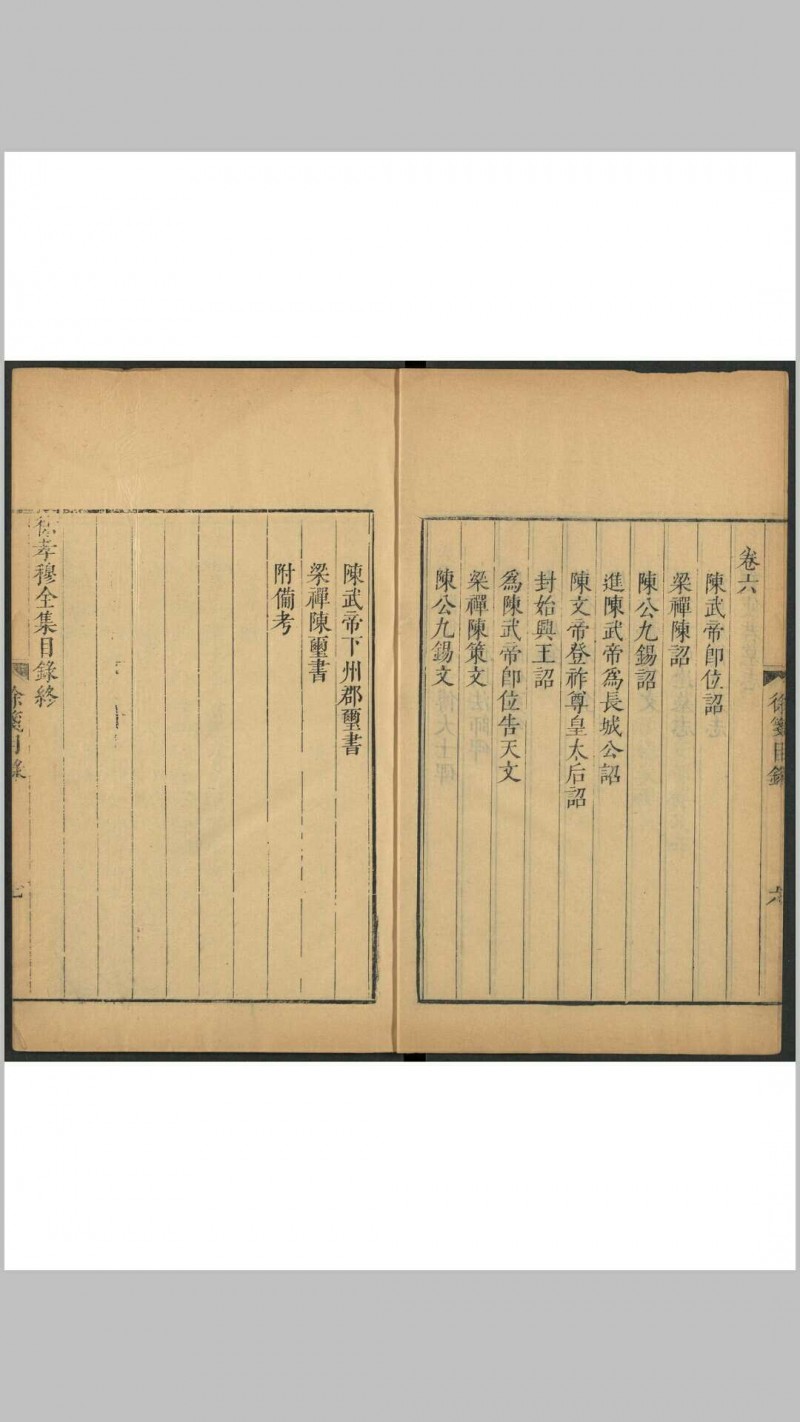 卷六
陳武帝卽位詔
梁禪陳詔
陳公九錫詔
進陳武帝爲長城公詔
陳文帝登祚尊皇太后詔
封始興王詔
爲陳武帝卽位告天文
梁禪陳策文
陳公九錫文
徐箋目錄
六
陳武帝下州郡璽書
梁禪陳璽書
附備考
徐孝穆全集目錄終
徐箋目錄
七